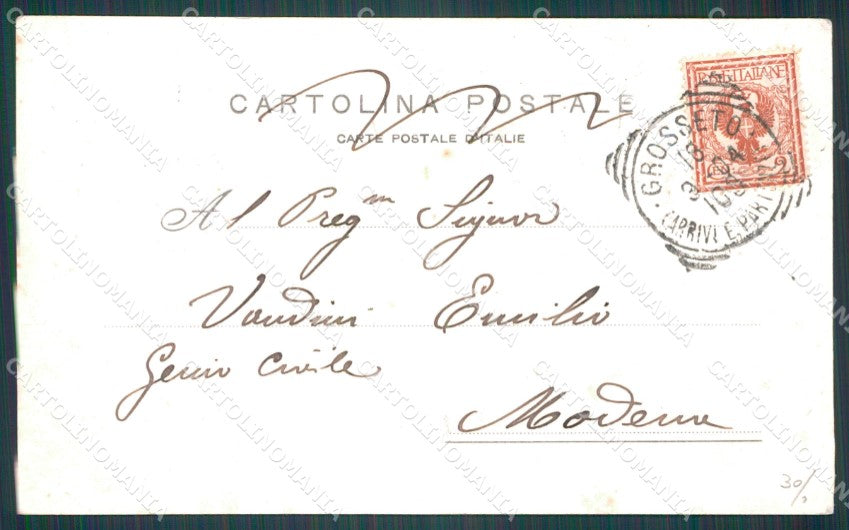 CARTOLINA POSTALE
CARTE POSTALE D'ITALIE
POSTE ITALIANE
2
GROSSETO
18
3 04
10S
(ARRIVI E PART
Al Preg.m Signor
Vandini Emilio
Genio Civile
Modena
30/
CARTOLINOMANIA